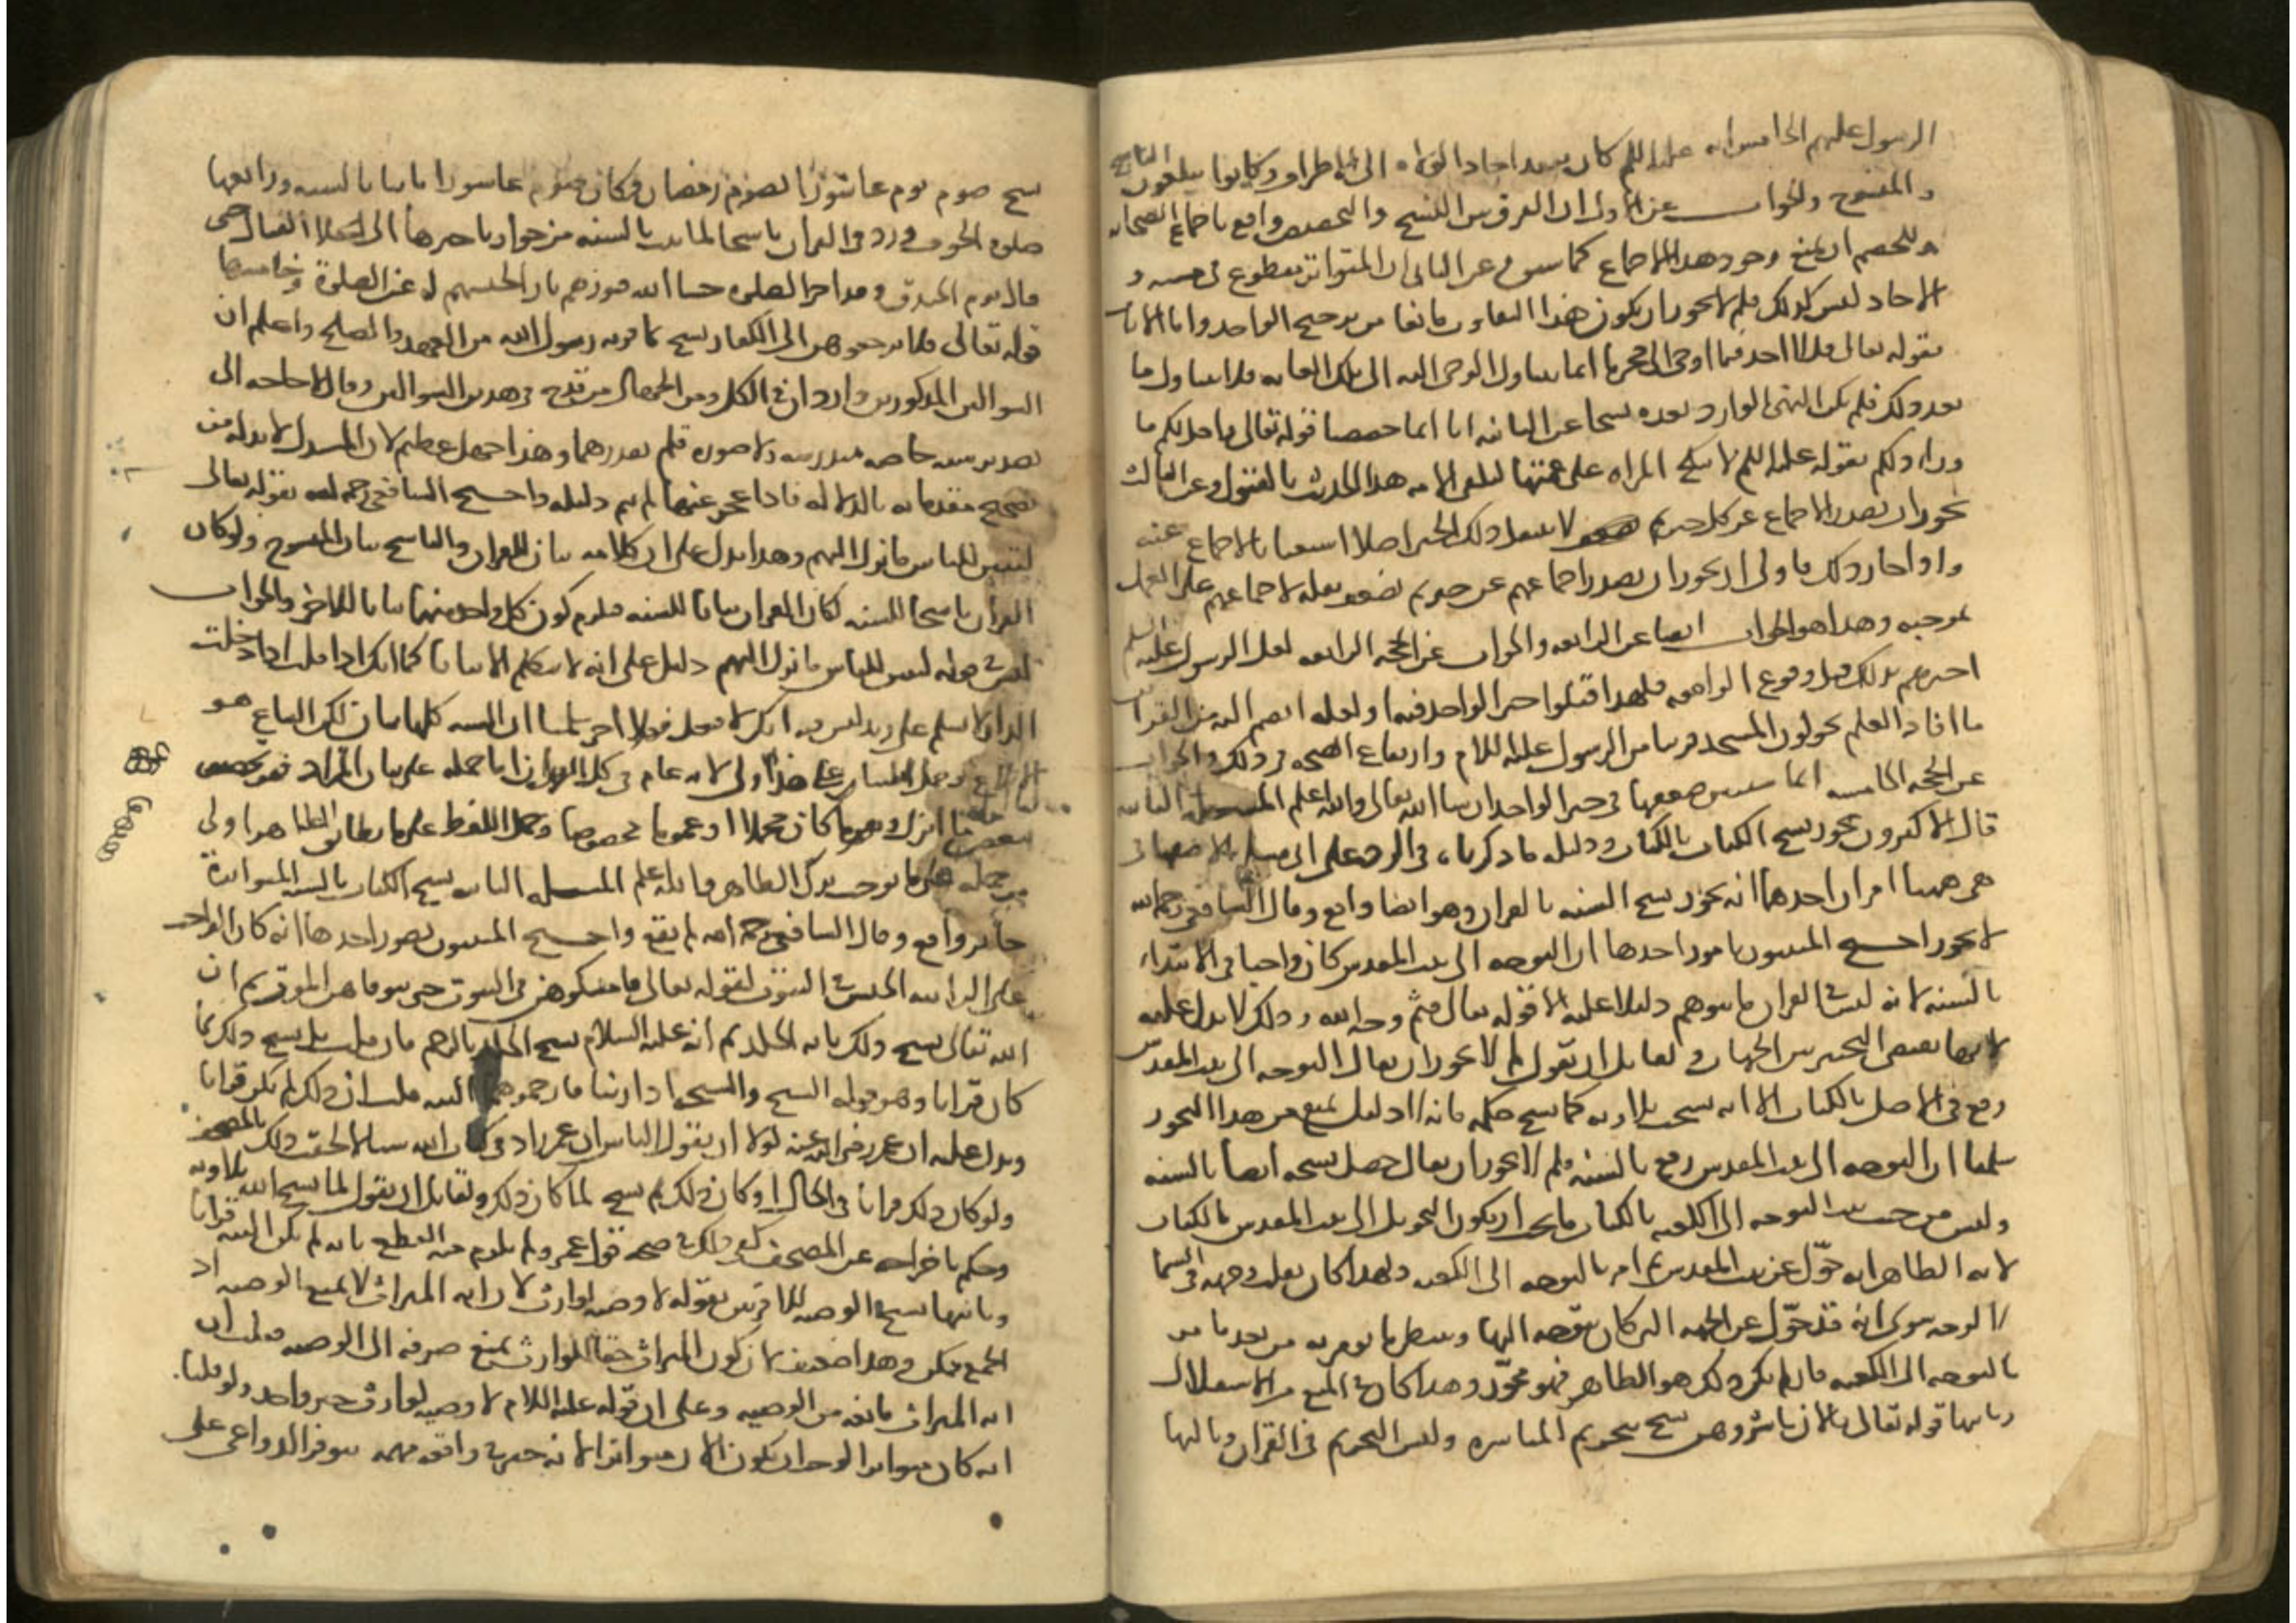 الرسول عليهم الخامس انه عليه السلم كان ينفد احاد الولاه الى الاطراف وكانوا يبلغون الناسخ
والمنسوخ والجواب عن الاول ان الفرق بين النسخ والتخصيص واقع باجماع الصحابه
وللخصم ان يمنع وجود هذا الاجماع كما سبق وعن الثانى ان المتواتر مقطوع فى متنه و
الاحاد ليس كذلك فلم لا يجوز ان يكون هذا التفاوت مانعا من ترجيح الواحد واما الايات
فقوله تعالى قل لا اجد فيما اوحى الى محرما انما يتناول الوحى اليه الى تلك الغايه فلا يتناول ما
بعد ذلك فلم يكن النهى الوارد بعده نسخا عن الثانيه انا انما خصصنا قوله تعالى واحل لكم ما
وراء ذلكم بقوله عليه السلم لا تنكح المراه على عمتها لتلقى الامه هذا الحديث بالقبول وعن الثالث
يجوز ان يصدر الاجماع عن خبر ثم لا ينقل ذلك الخبر اصلا استغنا بالاجماع عنه
واذا جاز ذلك فاولى ان يجوز ان يصدر اجماعهم عن خبر ثم يضعف نقله لاجماعهم على العمل
بموجبه وهذا هو الجواب ايضا عن الرابعه والجواب عن الحجه الرابعه لعل الرسول عليه السلم
اخبرهم بذلك قبل وقوع الواقعه فلهذا قبلوا خبر الواحد فيها ولعله انضم اليه من القراين
ما افاد العلم نحو لون المسجد قريبا من الرسول عليه السلام وارتفاع الضجه فى ذلك والجواب
عن الحجه الخامسه انما سنبين ضعفها فى خبر الواحد ان شا الله تعالى والله اعلم المسله الثانيه
قال الاكثرون يجوز نسخ الكتاب بالكتاب ودليله ما ذكرناه فى الرد على ابى مسلم الاصفهانى
بقى هنا امران احدهما انه يجوز نسخ السنه بالقران وهو ايضا واقع وقال الشافعى رحمه الله
لا يجوز احتج المثبتون بامور احدها ان التوجه الى بيت المقدس كان واجبا فى الابتداء
بالسنه لانه ليس فى القران ما يتوهم دليلا عليه الا قوله تعالى فثم وجه الله وذلك لا يدل عليه
لانها تقتضى التخيير بين الجهات ولقايل ان يقول لم لا يجوز ان يقال التوجه الى بيت المقدس
وقع فى الاصل بالكتاب الا انه نسخت تلاوته كما نسخ حكمه فانه لا دليل يمنع من هذا التجويز
سلمنا ان التوجه الى بيت المقدس وقع بالسنه فلم لا يجوز ان يقال حصل نسخه ايضا بالسنه
وليس من حيث ثبت التوجه الى الكعبه بالكتاب ما يجب ان يكون التحويل الى بيت المقدس بالكتاب
لانه الظاهر انه حول عن بيت المقدس ثم امر بالتوجه الى الكعبه ولهذا كان يقلب وجهه فى السما
الا لوجه سوى انه قد حول عن الجهه التى كان يتوجه اليها وينتظر ما يومر به من بعد ما من
بالتوجه الى الكعبه فان لم يكن ذلك هو الظاهر فهو مجوز وهذا كاف فى المنع من الاستدلال
وثانيها قوله تعالى فالان باشروهن نسخ تحريم المباشره وليس التحريم فى القران وثالثها
نسخ صوم يوم عاشورا بصوم رمضان وكان صوم عاشورا ثابتا بالسنه ورابعها
صلوة الخوف ورد فى القران ناسخا لما ثبت بالسنه من جواز تاخيرها الى انجلا القتال حتى
قال يوم الخندق وقد اخر الصلوه حشا الله قبورهم نارا لحبسهم له عن الصلوة وخامسها
قوله تعالى فلا ترجعوهن الى الكفار نسخ ما قرره رسول الله من العهد والصلح واعلم ان
السوالين المذكورين واردان فى الكل ومن الجهال من قدح فى هذين السوالين وقال لا حاجه الى
تقدير سنه خاصه مندرسه ولا صوره فلم تقدرهما وهذا جهل عظيم لان المستدل لا بد له من
تصحيح مقدماته بالدلاله فاذا عجز عنها لم يتم دليله واحتج الشافعى رحمه الله بقوله تعالى
لتبين للناس ما نزل اليهم وهذا يدل على ان كلامه بيان للقران والناسخ بيان المنسوخ ولو كان
القران ناسخا للسنه لكان القران بيانا للسنه فيلزم كون كل واحد منهما بيانا للاخر والجواب
ليس فى قوله لتبين للناس ما نزل اليهم دليل على انه لا يتكلم الا بيانا كما انك اذا قلت اذا دخلت
الدار لا سلم على زيد ليس فيه انك لا تفعل فعلا اخر سلمنا ان السنه كلها بيان لكن البيان هو
الابلاغ وحمل البيان على هذا اولى لانه عام فى كل القران اما حمله على بيان المراد فهو تخصيص
ببعض ما انزل وهو ما كان مجملا او عموما مخصوصا وحمل اللفظ على ما يطابق الظاهر اولى
من حمله على ما يوجب ترك الظاهر والله اعلم المسله الثانيه نسخ الكتاب بالسنه المتواترة
جايز وواقع وقال الشافعى رحمه الله لم يقع واحتج المثبتون بصور احدها انه كان الواجب
على الزانيه الحبس فى البيوت لقوله تعالى فامسكوهن فى البيوت حتى يتوفاهن الموت ثم ان
الله تعالى نسخ ذلك بايه الجلد ثم انه عليه السلام نسخ الجلد بالرجم فان قلت بل نسخ ذلك بما
كان قرانا وهو قوله الشيخ والشيخه اذا زنيا فارجموهما البته قلت ان ذلك لم يكن قرانا
ويدل عليه ان عمر رضى الله عنه لولا ان يقول الناس ان عمر زاد فى كتاب الله شيا لالحقت ذلك بالمصحف
ولو كان ذلك قرانا فى الحال او كان ذلك ثم نسخ لما كان ذلك ولقايل ان يقول لما نسخ الله تلاوته
وحكم باخراجه عن المصحف كفى ذلك فى صحه قول عمر ولم يلزم منه القطع بانه لم يكن البته قرانا
وثانيها نسخ الوصيه للاقربين بقوله لا وصيه لوارث لان ايه الميراث لا يمنع الوصيه اذ
الجمع ممكن وهذا ضعيف لان كون الميراث حقا للوارث يمنع صرفه الى الوصيه فثبت ان
ايه الميراث مانعه من الوصيه وعلى ان قوله عليه السلام لا وصيه لوارث خبر واحد ولو قلنا
انه كان متواترا لوجب ان يكون الان متواترا لانه خبر فى واقعه مهمه تتوفر الدواعى على